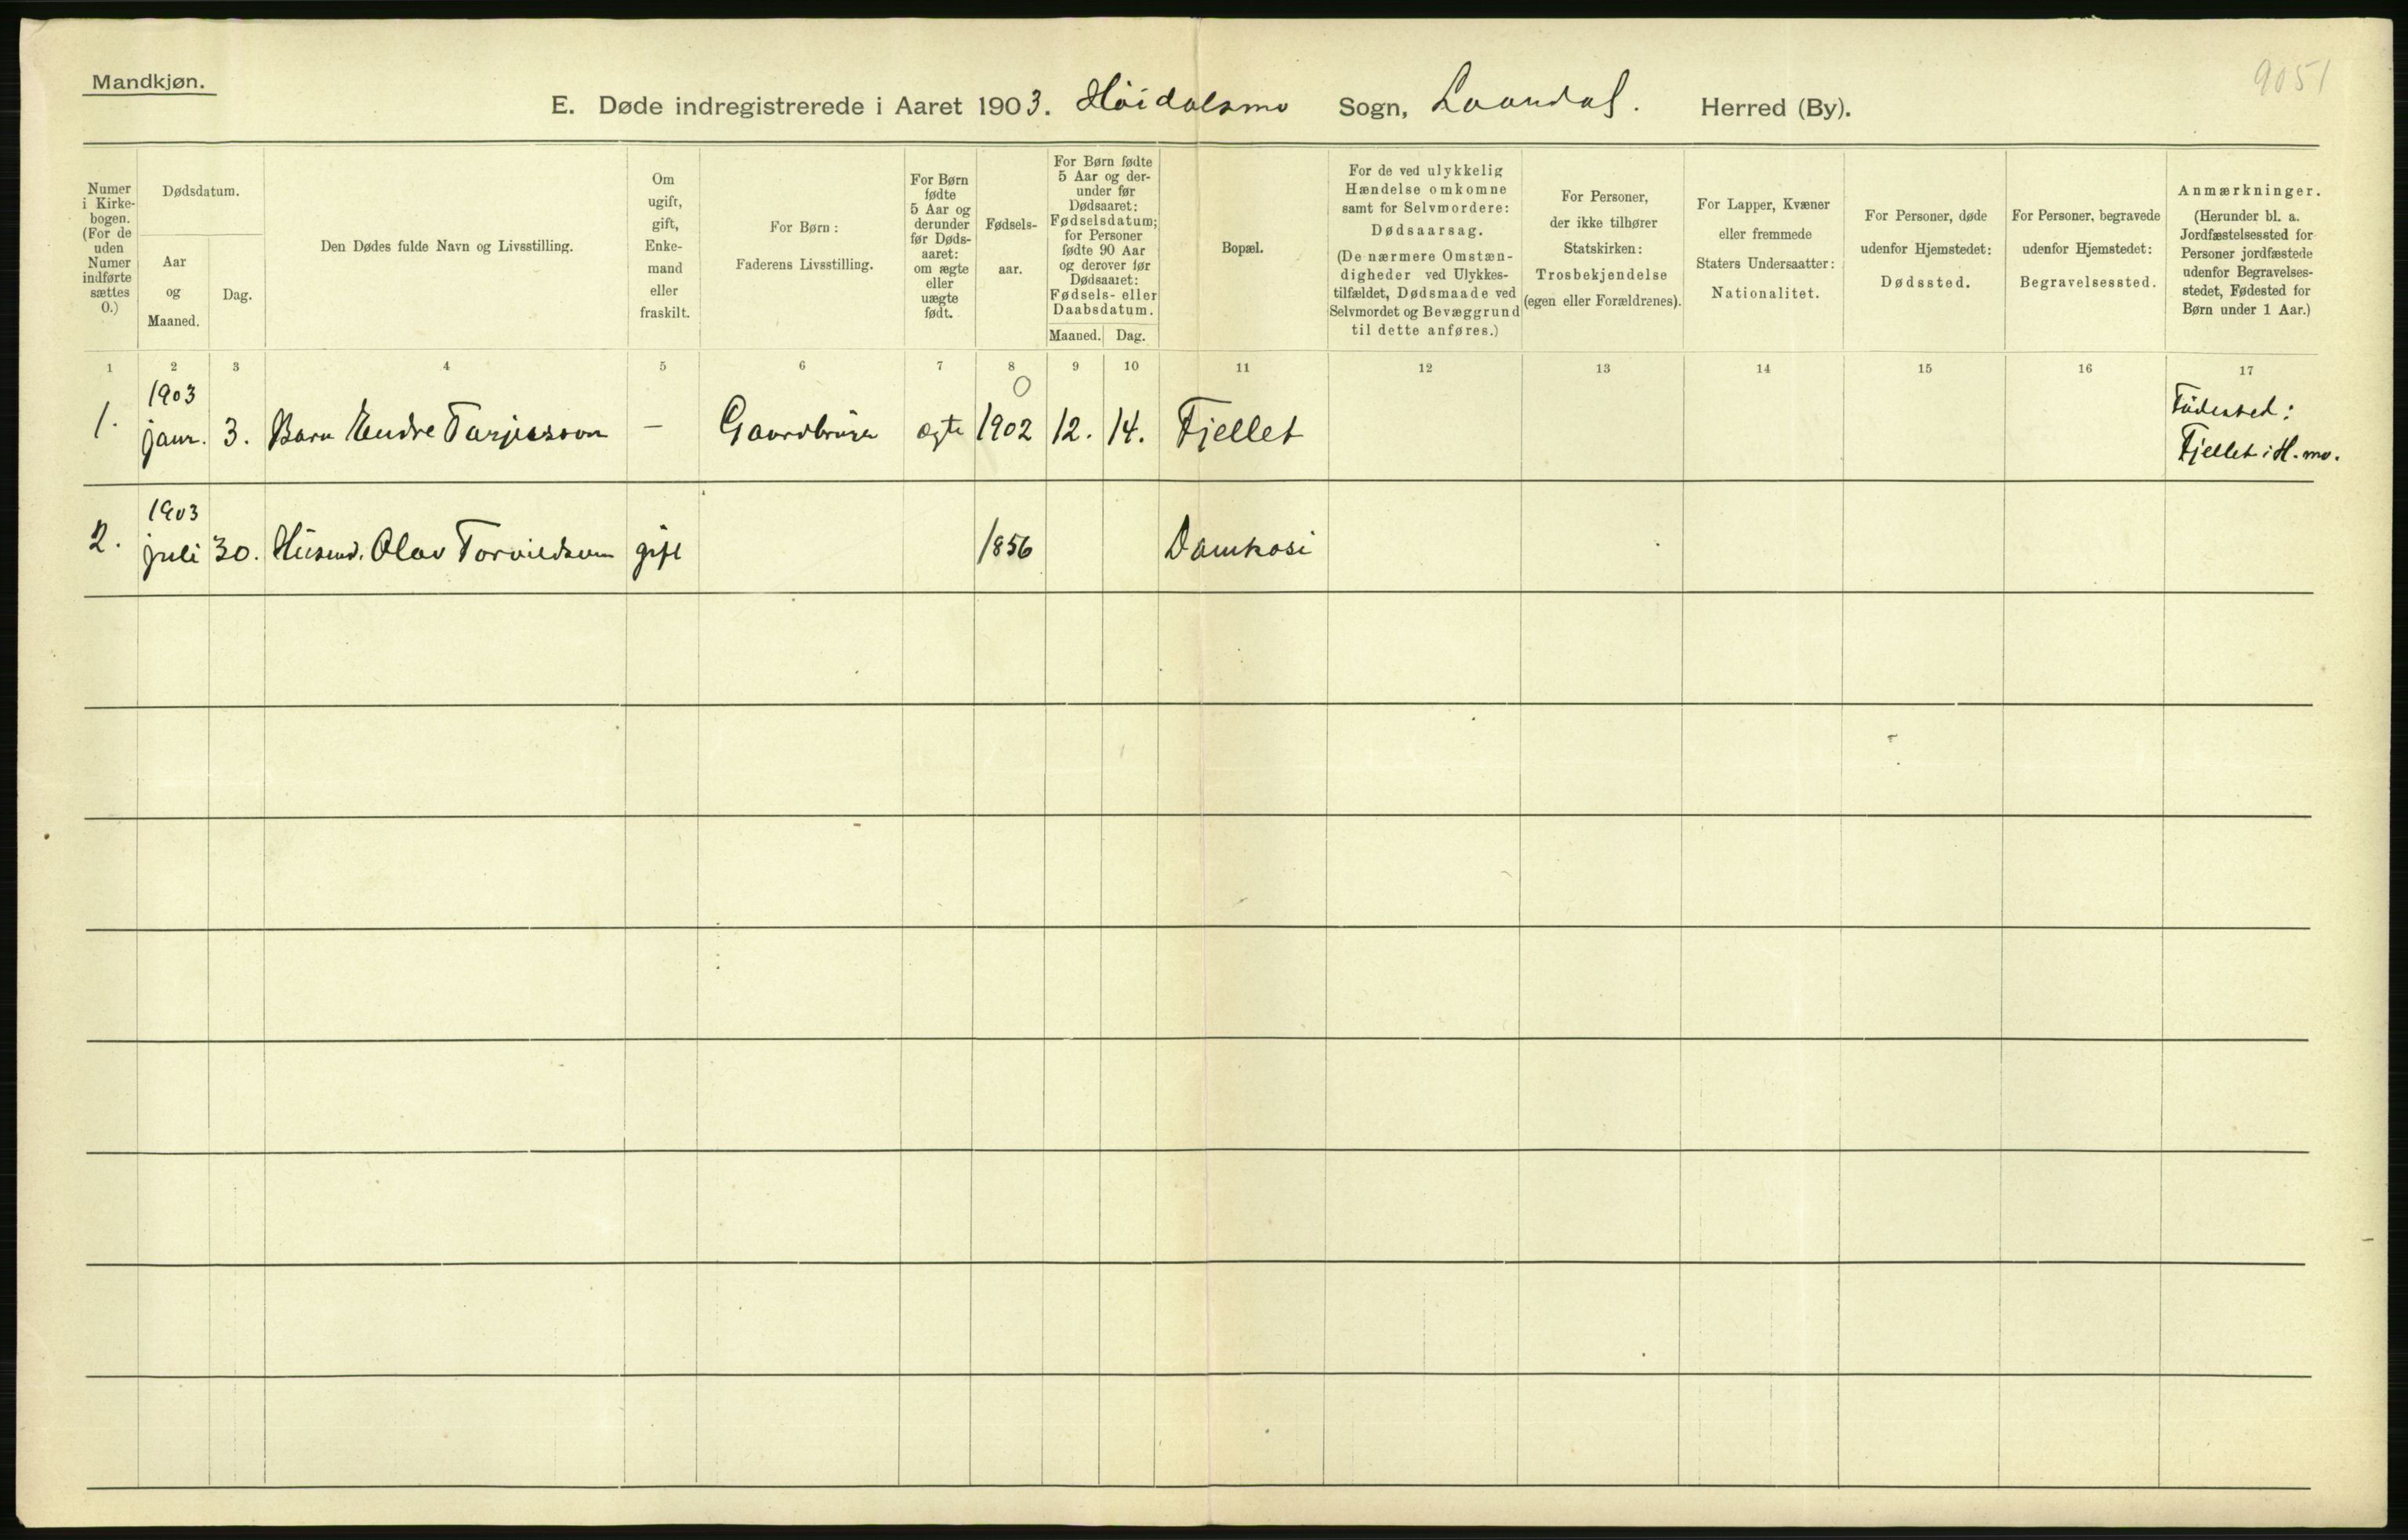 Mandkjøn.
9051
E. Døde indregistrerede i Aaret 1903. Höidalsmo Sogn, Laardal. Herred (By).
Numer
i Kirke-
bogen.
(For de
uden
Numer
indførte
sættes
0.)
Dødsdatum.
Aar
og
Maaned.
Dag.
Den Dødes fulde Navn og Livsstilling.
Om
ugift,
gift,
Enke-
mand
eller
fraskilt.
For Børn:
Faderens Livsstilling.
For Børn
fødte
5 Aar og
derunder
før Døds-
aaret:
om ægte
eller
uægte
født.
Fødsels-
aar.
For Børn fødte
5 Aar og der-
under før
Dødsaaret:
Fødselsdatum;
for Personer
fødte 90 Aar
og derover før
Dødsaaret:
Fødsels- eller
Daabsdatum.
Maaned. Dag.
Bopæl.
For de ved ulykkelig
Hændelse omkomne
samt for Selvmordere:
Dødsaarsag.
(De nærmere Omstæn-
digheder ved Ulykkes-
tilfældet, Dødsmaade ved
Selvmordet og Bevæggrund
til dette anføres.)
For Personer,
der ikke tilhører
Statskirken:
Trosbekjendelse
(egen eller Forældrenes).
For Lapper, Kvæner
eller fremmede
Staters Undersaatter:
Nationalitet.
For Personer, døde
udenfor Hjemstedet:
Dødssted.
For Personer, begravede
udenfor Hjemstedet:
Begravelsessted.
Anmærkninger.
(Herunder bl. a.
Jordfæstelsessted for
Personer jordfæstede
udenfor Begravelses-
stedet, Fødested for
Børn under 1 Aar.)
1 2 3 4 5 6 7 8 9 10 11 12 13 14 15 16 17
1903 0 Födested:
1. janr. 3. Barn Endre Tarjeisson — Gaardbruger ægte 1902 12. 14. Fjellet Fjellet i H.mo.
1903
2. juli 30. Husmd. Olav gift 1856